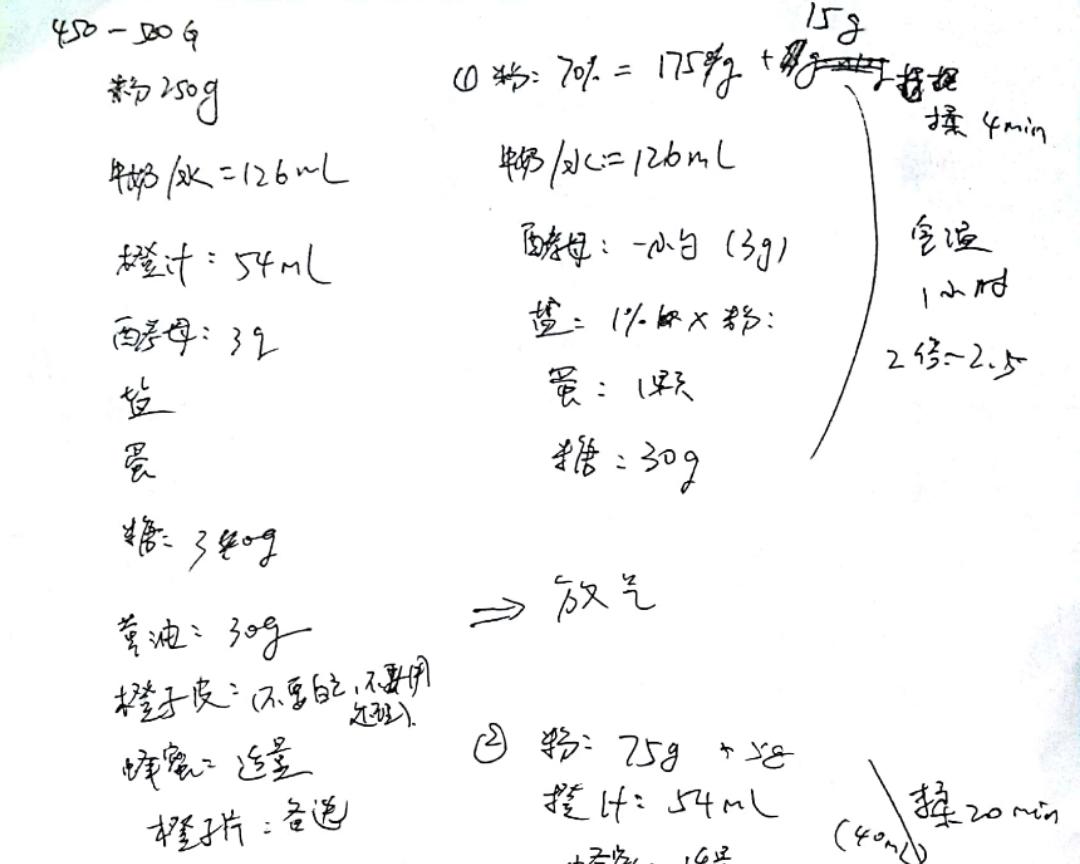 450-500G
粉250g
牛奶/水=126mL
橙汁:54mL
酵母:3g
盐
蛋
糖:30g
黄油:30g
橙子皮:(不要白色,不要用
蜂蜜:适量
橙子片:备选
15g
① 粉:70%=175g+
揉 4min
牛奶/水:=126mL
酵母:一小勺(3g)
盐:1% × 粉:
蛋:1颗
糖:30g
室温
1小时
2倍-2.5
⇒ 放气
② 粉:75g +5g
橙汁:54mL
揉20min
(40mL)